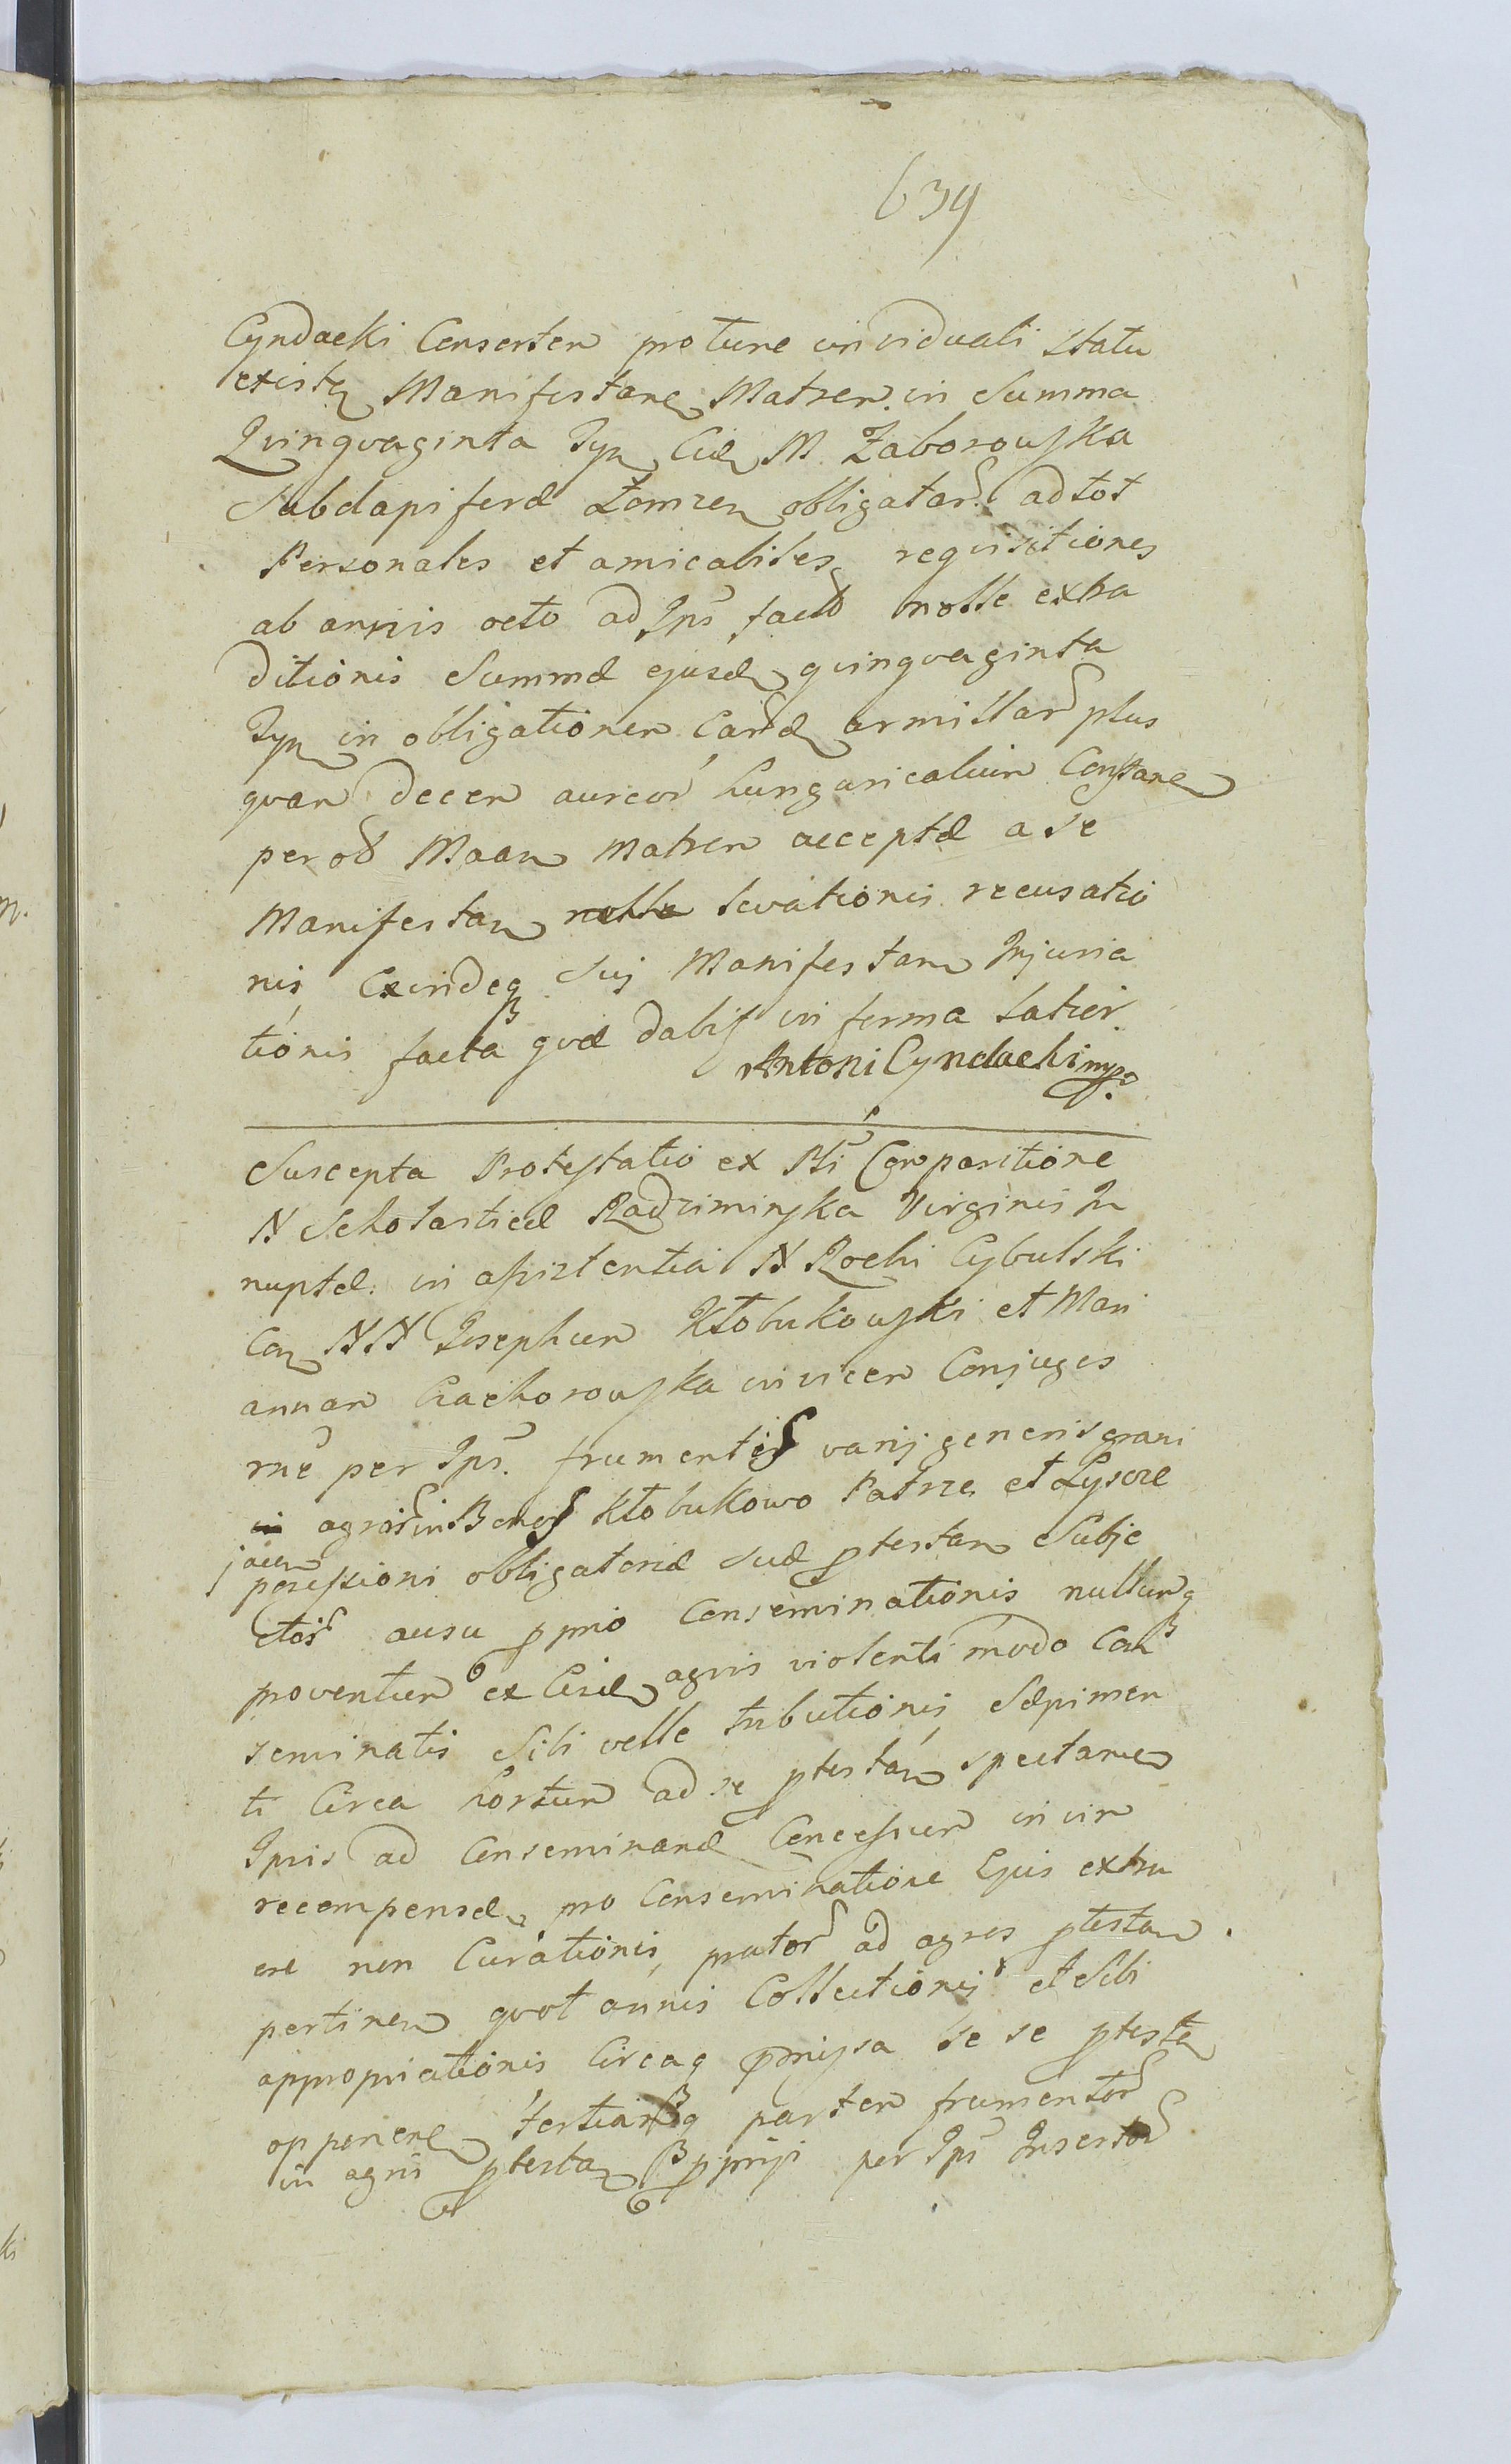 639
Cyndacki Consorten pro tunc in viduali statu
existen Manifestane Matren in Summa
Quinqvaginta Tyn Eid M Zaborowska
Subdapiferæ Łomzen obligatar ad tot
Personales et amicabiles requisitiones
ab annis octo ad Ips fact nolle extra
ditionis Summæ ejusd quinqvaginta
Tyn in obligationem Eard armillar plus
qvam decem aureor hungaricalium Constane
per od Maan Matren acceptæ a se
Manifestan nolle levationis recusatio
nis Exindeq Sui Manifestan Injuria
tionis facta qvæ dabit in forma latior
Antoni Cyndacki mp
Suscepta Protestatio ex Psti Comparitione
N Scholasticæ Radziminska Virginis In
nuptæ in assistentia N Rochi Cybulski
Con NN Josephum Kłobukowski et Mari
annam Ciachorowska invicem Conjuges
rne per Ips frumentor varij generis grani
in agros in Bonor Kłobukowo Patrze et Lysove
jacen
possessioni obligatoriæ suæ ptestan Subje
ctor ausu pprio Conseminationis nullumq
proventum ex Eisd agris violenti modo Con
seminatis Sibi velle tributionis Sæpimen
ti Circa hortum ad se ptestan spectane
Ipsis ad Conseminand Concessum in vim
recompensæ pro Conseminatione Ejus extru
ere non Curationis prator ad agros ptestan
pertinen quot annis Collectionis et Sibi
appropriationis Circaq præmissa se se ptestæ
opponene tertiamq partem frumentor
in agris ptestan ppriis per Ips Insertor